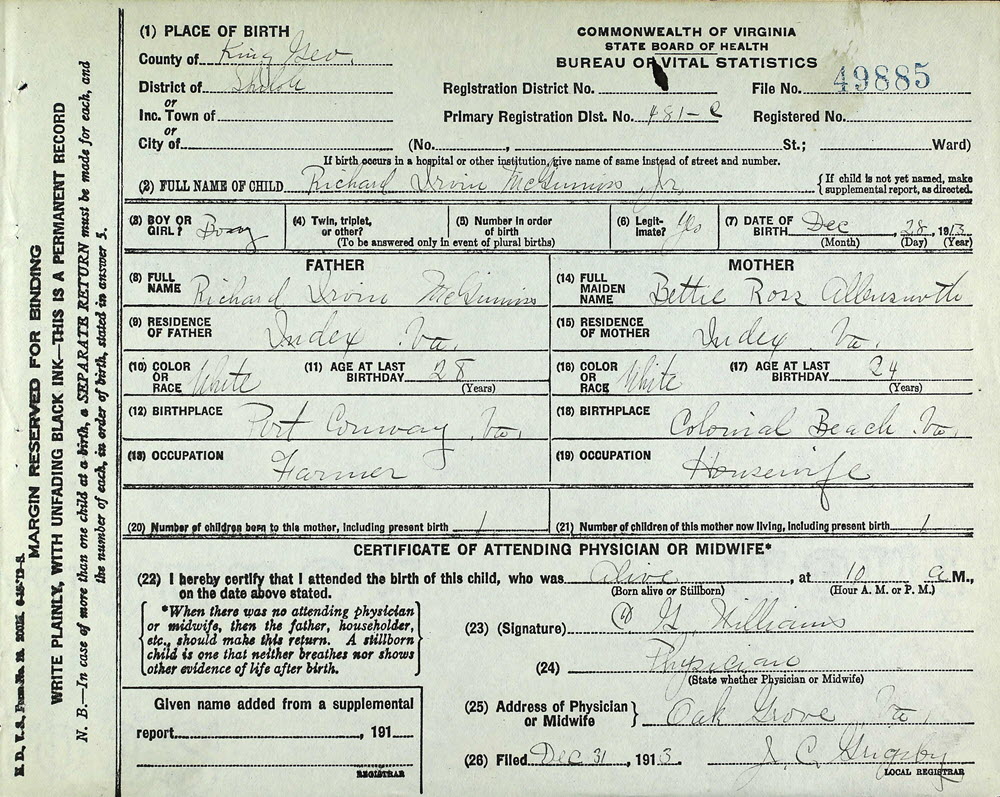 (1) PLACE OF BIRTH
County of King Geo.
District of Shiloh
or
Inc. Town of
or
City of
COMMONWEALTH OF VIRGINIA
STATE BOARD OF HEALTH
BUREAU OF VITAL STATISTICS
Registration District No. File No. 49885
Primary Registration Dist. No. 481-C Registered No.
(No. , St.; Ward)
If birth occurs in a hospital or other institution, give name of same instead of street and number.
(2) FULL NAME OF CHILD Richard Irvin McGinniss, Jr. {If child is not yet named, make supplemental report, as directed.
(3) BOY OR GIRL? Boy
(4) Twin, triplet, or other?
(5) Number in order of birth
(To be answered only in event of plural births)
(6) Legitimate? Yes
(7) DATE OF BIRTH Dec , 28 , 1913
(Month) (Day) (Year)
FATHER
(8) FULL NAME Richard Irvin McGinniss
(9) RESIDENCE OF FATHER Index Va.
(10) COLOR OR RACE White (11) AGE AT LAST BIRTHDAY 28
(Years)
(12) BIRTHPLACE Port Conway, Va.
(13) OCCUPATION Farmer
MOTHER
(14) FULL MAIDEN NAME Bettie Ross Allensworth
(15) RESIDENCE OF MOTHER Index Va.
(16) COLOR OR RACE White (17) AGE AT LAST BIRTHDAY 24
(Years)
(18) BIRTHPLACE Colonial Beach Va.
(19) OCCUPATION Housewife
(20) Number of children born to this mother, including present birth 1
(21) Number of children of this mother now living, including present birth 1
CERTIFICATE OF ATTENDING PHYSICIAN OR MIDWIFE*
(22) I hereby certify that I attended the birth of this child, who was Alive , at 10 a M.,
on the date above stated. (Born alive or Stillborn) (Hour A. M. or P. M.)
{*When there was no attending physician
or midwife, then the father, householder,
etc., should make this return. A stillborn
child is one that neither breathes nor shows
other evidence of life after birth.}
(23) (Signature) Williams
(24) Physician
(State whether Physician or Midwife)
(25) Address of Physician or Midwife} Oak Grove Va.
(26) Filed Dec 31 , 1913 . J. C. Grigsby
LOCAL REGISTRAR
Given name added from a supplemental
report , 191
REGISTRAR
MARGIN RESERVED FOR BINDING
WRITE PLAINLY, WITH UNFADING BLACK INK—THIS IS A PERMANENT RECORD
N. B.—In case of more than one child at a birth, a SEPARATE RETURN must be made for each, and
the number of each, in order of birth, stated in answer 5.